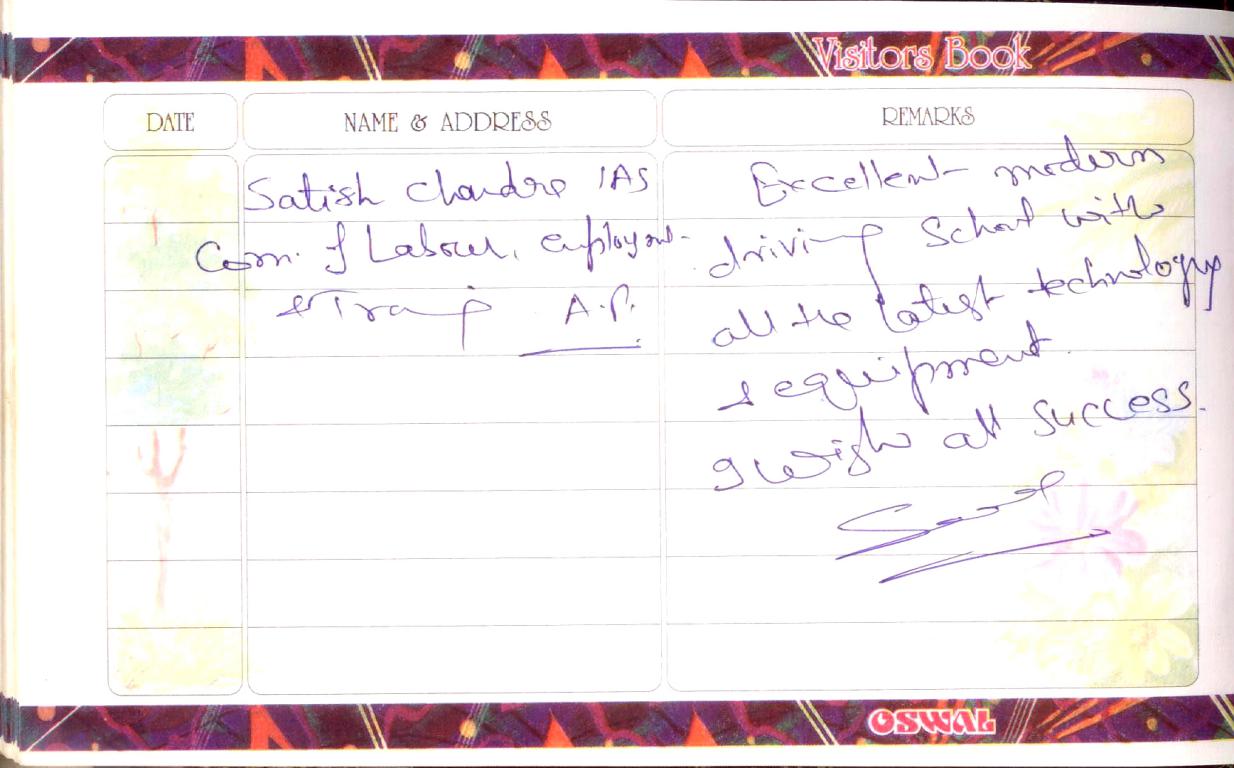 Visitors Book
DATE
NAME & ADDRESS
REMARKS
Satish Chandra IAS
Com. of Labour, employment
& Training A.P.
Excellent modern
driving School with
all the latest technology
& equipment.
I wish all success.
OSWAL